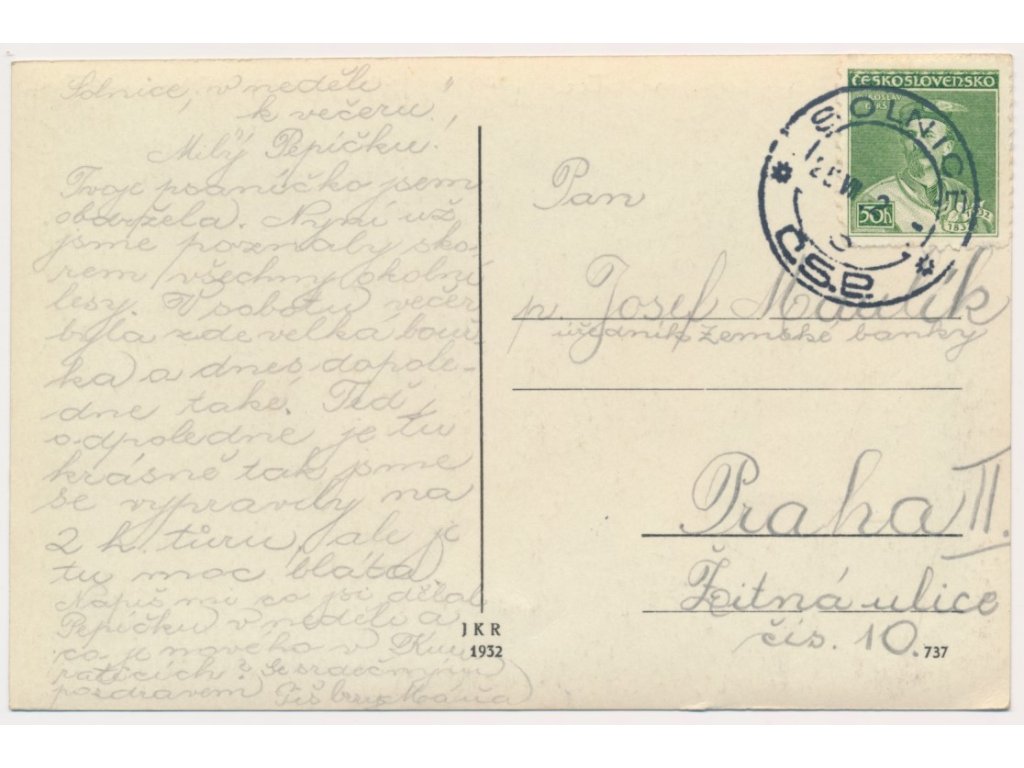 Solnice, v neděli
k večeru!
Milý Pepíčku!
Tvoje psaníčko jsem
obdržela. Nyní už
jsme poznaly sko-
rem všechny okolní
lesy. V sobotu večer
byla zde velká bouř-
ka a dnes dopole-
dne také. Teď
odpoledne je tu
krásně tak jsme
se vypravily na
2 h. túru, ale je
tu moc bláta
Napiš mi co jsi dělal
Pepíčku v neděli a
co je nového v
Se srdečným
pozdravem Máňa
JKR
1932
ČESKOSLOVENSKO
50h
SOLNICE
ČSP.
Pan
p. Josef
úředník Zemské banky
Praha II.
Žitná ulice
čís. 10.
737